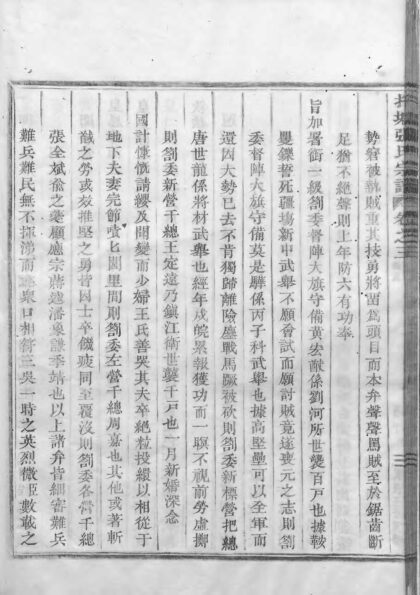 張氏宗譜 卷之三
勢窘被執賊重其技勇將留為頭目而本弁聲聲罵賊至於鋸齒斷
足猶不絕聲則上年防六有功奉
旨加署銜一級劄委督陣大旗守備黃宏猷係劉河所世襲百戶也據鞍
矍鑠誓死疆場新中武舉不願會試而願討賊竟遂喪元之志則劄
委督陣大旗守備莫是驊係丙子科武舉也據高堅壘可以全軍而
還因大勢已去不肯獨歸離險塵戰馬蹶被砍則劄委新標營把總
唐世龍係將材武舉也經年戍皖累報獲功而一瞑不視前勞虛擲
則劄委新營千總王定遠乃鎮江衛世襲千戶也一月新婚深念
國計慷慨請纓及聞變而少婦王氏善哭其夫卒絕粒投繯以相從于
地下夫妻完節嘖匕閭里間則劄委左營千總周嘉也其他或著斬
馘之勞或效推堅之勇皆因士卒饑疲同至覆沒則劄委各營千總
張全斌俞之夔顧應宗蔣達潘象謙季靖也以上諸弁皆細審難兵
難兵難民無不揮涕而述眾口相符三吳一時之英烈微臣數載之